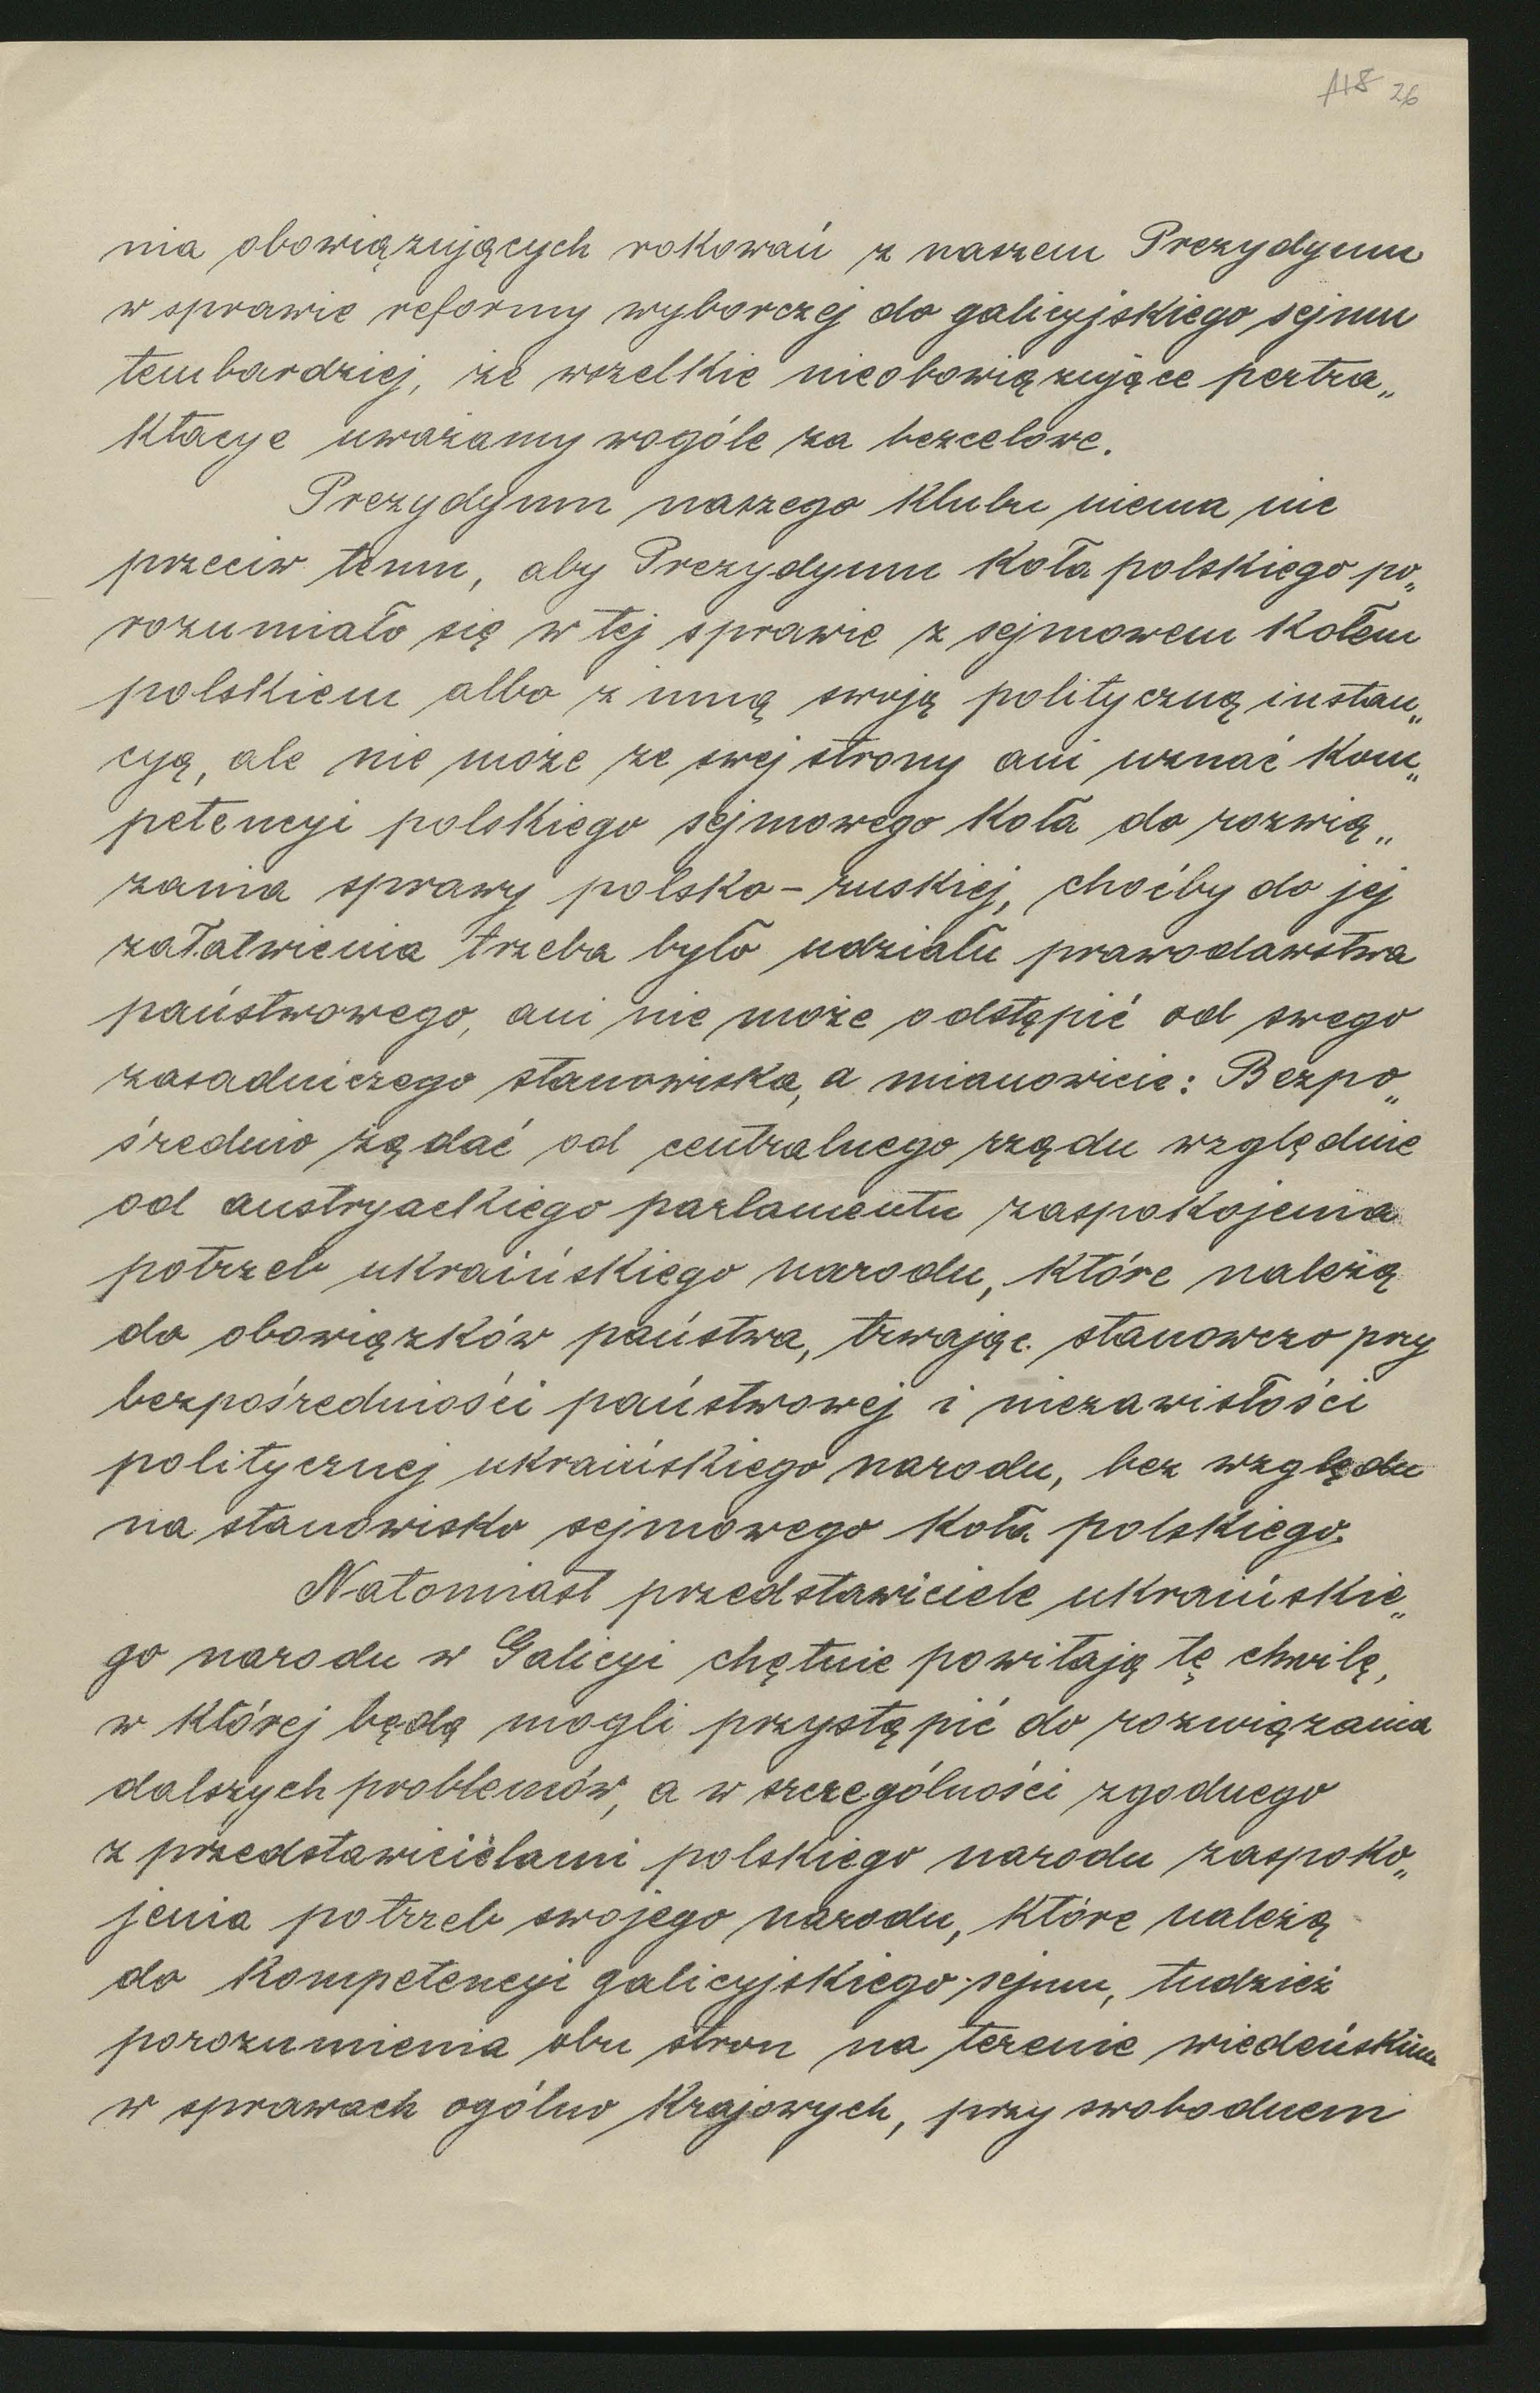 26
nia obowiązujących rokowań z naszem Prezydyum
w sprawie reformy wyborczej do galicyjskiego sejmu
tembardziej, że wszelkie nieobowiązujące pertra„
ktacye uważamy wogóle za bezcelowe.
Prezydyum naszego klubu niema nic
przeciw temu, aby Prezydyum Koła polskiego po„
rozumiało się w tej sprawie z sejmowem Kołem
polskiem albo z inną swoją polityczną instan„
cyą, ale nie może ze swej strony ani uznać kom„
petencyi polskiego sejmowego Koła do rozwią„
zania sprawy polsko-ruskiej, choćby do jej
załatwienia trzeba było udziału prawodawstwa
państwowego, ani nie może odstąpić od swego
zasadniczego stanowiska, a mianowicie: Bezpo„
średnio żądać od centralnego rządu względnie
od austryackiego parlamentu zaspokojenia
potrzeb ukraińskiego narodu, które należą
do obowiązków państwa, trwając stanowczo przy
bezpośredniości państwowej i niezawisłości
politycznej ukraińskiego narodu, bez względu
na stanowisko sejmowego Koła polskiego.
Natomiast przedstawiciele ukraińskie„
go narodu w Galicyi chętnie powitają tę chwilę,
w której będą mogli przystąpić do rozwiązania
dalszych problemów, a w szczególności zgodnego
z przedstawicielami polskiego narodu zaspoko„
jenia potrzeb swojego narodu, które należą
do kompetencyi galicyjskiego sejmu, tudzież
porozumienia obu stron na terenie wiedeńskim
w sprawach ogólno krajowych, przy swobodnem